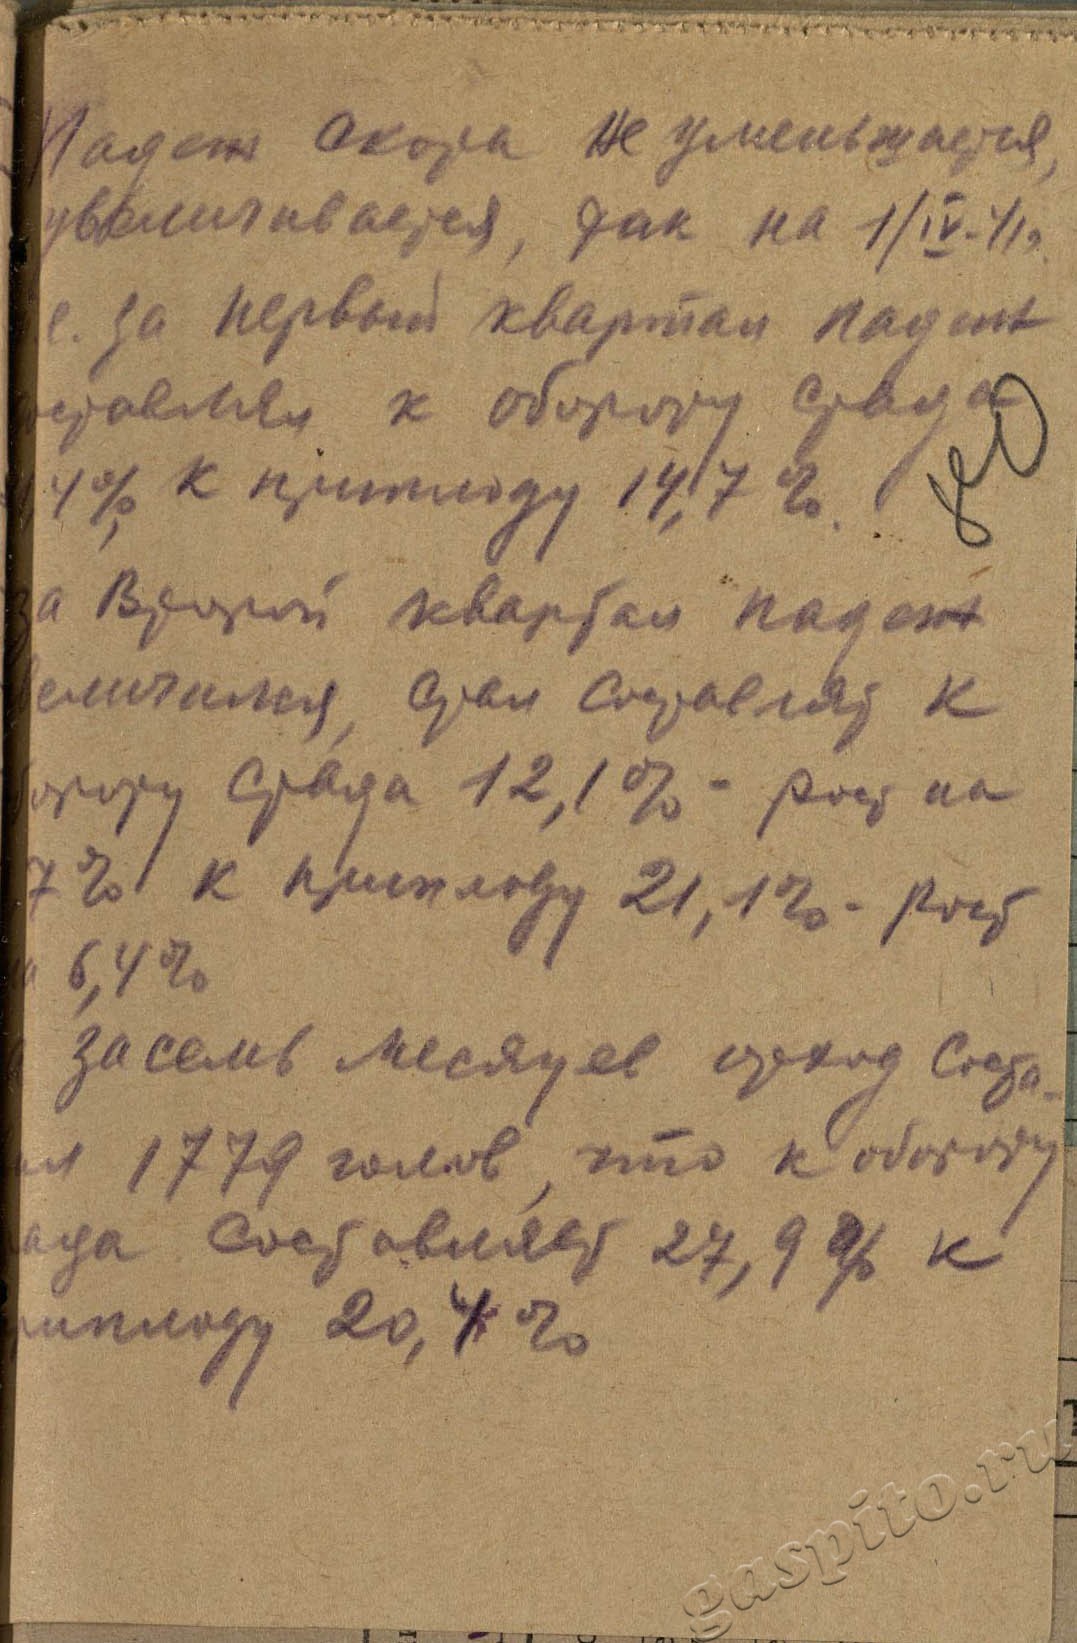 Падеж скота не уменьшается,
увеличивается, так на 1/IV-41г.
е. за первый квартал падеж
ставлял к обороту стада
4%, к приплоду 14,7%.
за второй квартал падеж
величился, стал составлят к
обороту стада 12,1% - рост на
7% к приплоду 21,1% - рост
на 6,4%
за семь месяцев отход соста-
ил 1779 голов, что к обороту
ада составляет 27,9% к
риплоду 20,4%
gaspito.ru